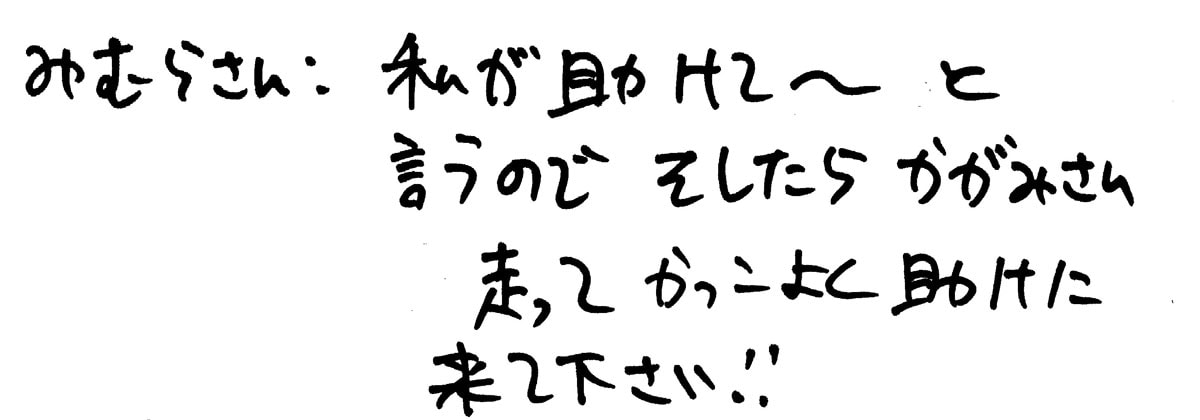 みむらさん: 私が助けて〜と
言うのでそしたらかがみさん
走ってかっこよく助けに
来て下さい!!